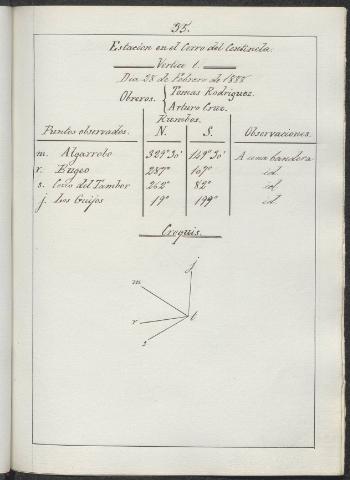 35.
Estacion en el Cerro del Centinela.
Vertice t.
Dia 25 de Febrero de 1888
Obreros. Tomas Rodriguez.
Arturo Cruz.
Rumbos.
Puntos observados. N. S. Observaciones.
m. Algarrobo 329° 30' 149° 30' A una bandera
r. 287° 107° id.
s. Cerro del Tambor 262° 82° id
j. Los Guijos 19° 199° id.
Croquis.
j
m
r t
s